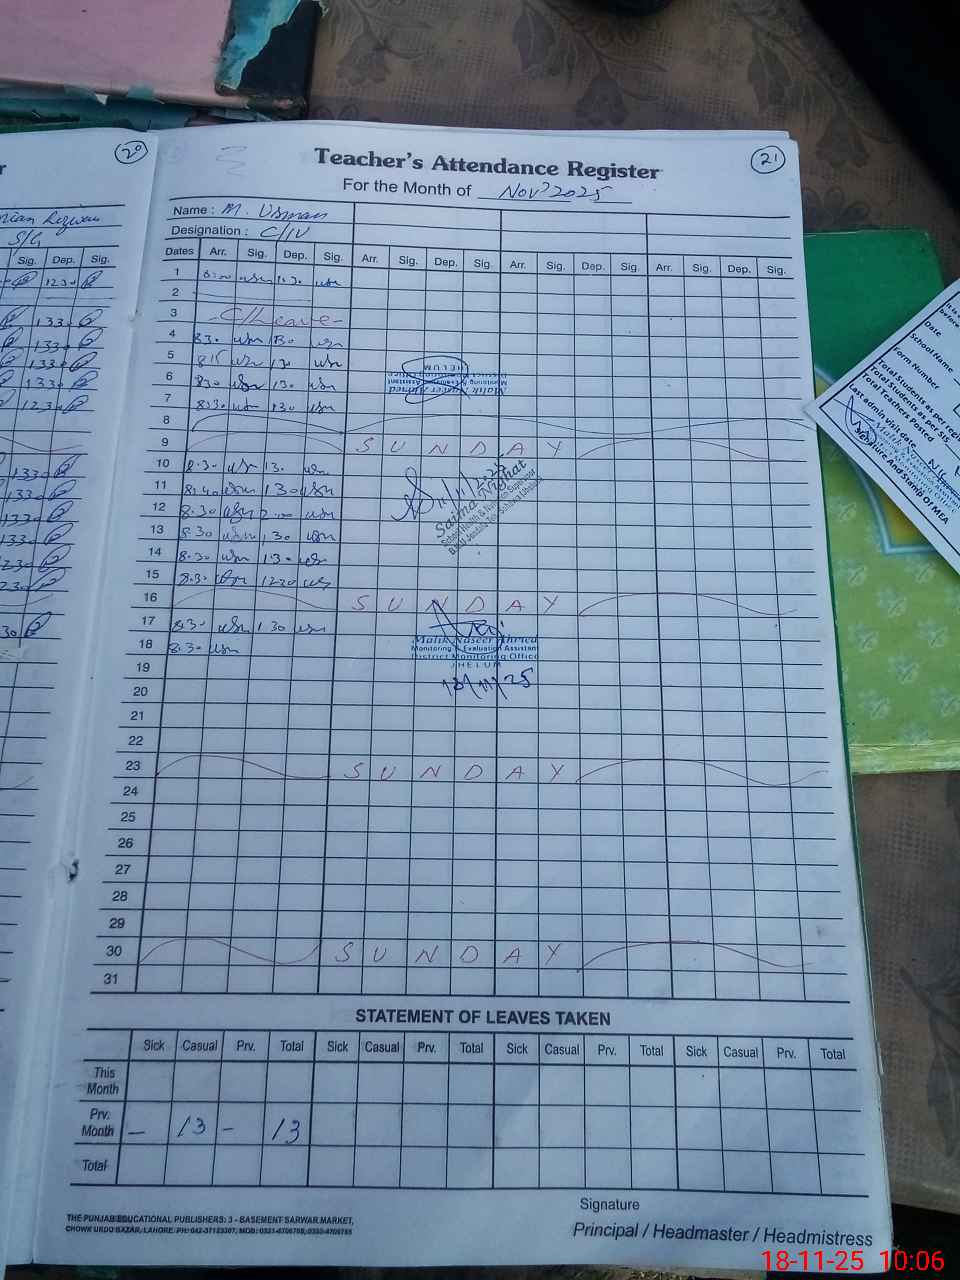 20
21
Teacher's Attendance Register
For the Month of Nov 2025
Name : M. Usman
Designation : C/IV
S/G
Dates Arr. Sig. Dep. Sig. Arr. Sig. Dep. Sig. Arr. Sig. Dep. Sig. Arr. Sig. Dep. Sig.
Sig. Dep. Sig.
1 8:00 usm 1.30 usm
2
3 -C/Leave-
4 8.30 usm 1.30 usm
5 8.15 usm 1.30 usm
6 8.30 usm 1.30 usm
7 8.30 usm 1.30 usm
8
9 SUNDAY
10 8.30 usm 1.30 usm
11 8.40 usm 1.30 usm
12 8.30 usm 2.00 usm
13 8.30 usm 1.30 usm
14 8.30 usm 1.30 usm
15 8.30 usm 12.30 usm
16 SUNDAY
17 8.30 usm 1.30 usm
18 8.30 usm
19
20
21
22
23 SUNDAY
24
25
26
27
28
29
30 SUNDAY
31
1230
1330
1330
1330
1330
1230
1330
1330
1330
1330
1230
1230
Malik Naseer Ahmed
Monitoring & Evaluation Assistant
District Monitoring Office
JHELUM
11/11/2025
Saima Nishat
School Health & Nutrition Supervisor
Malik Naseer Ahmed
Monitoring & Evaluation Assistant
District Monitoring Office
JHELUM
18/11/25
STATEMENT OF LEAVES TAKEN
Sick Casual Prv. Total Sick Casual Prv. Total Sick Casual Prv. Total Sick Casual Prv. Total
This Month
Prv. Month - 13 - 13
Total
Signature
Principal / Headmaster / Headmistress
THE PUNJAB EDUCATIONAL PUBLISHERS: 3 - BASEMENT SARWAR MARKET,
CHOWK URDU BAZAR, LAHORE. PH: 042-37123307,
Date
School Name
Form Number
Total Students as per
Total Students as per SIS
Total Teachers Posted
Last admin visit date
Signature And Stamp Of MEA
18-11-25 10:06